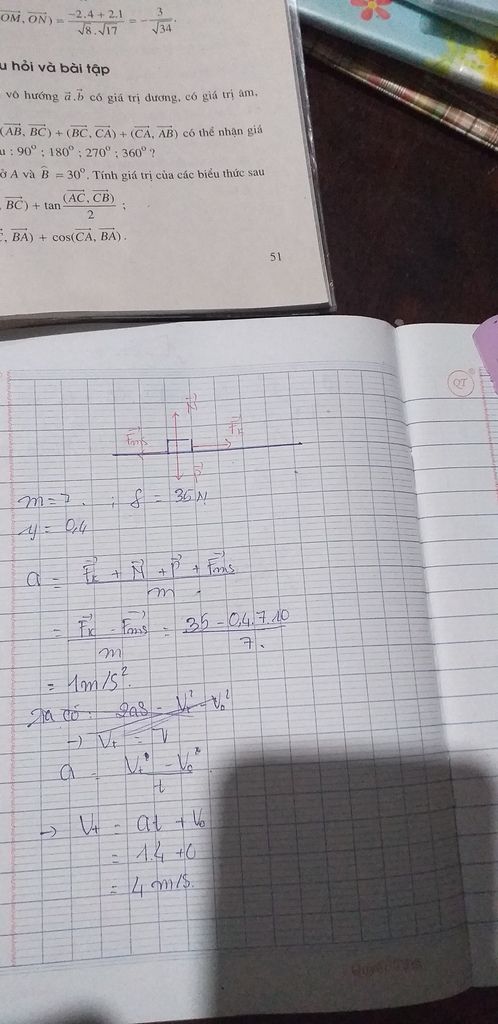 OM, ON) = −2.4 + 2.1 / √8 . √17 = − 3 / √34 .
u hỏi và bài tập
vô hướng a.b có giá trị dương, có giá trị âm,
(AB, BC) + (BC, CA) + (CA, AB) có thể nhận giá
u : 90° ; 180° ; 270° ; 360° ?
ở A và B = 30°. Tính giá trị của các biểu thức sau
, BC) + tan (AC, CB) / 2 ;
C, BA) + cos(CA, BA) .
51
QT
N
Fms
Fk
P
m = 7 . ; f = 35 N
μ = 0,4
a = Fk + N + P + Fms / m
= Fk − Fms / m = 35 − 0,4.7.10 / 7 .
= 1m/s².
Ta có : 2as = Vt² − V0²
→ Vt =
a = Vt² − V0² / t
→ Vt = at + V0
= 1.4 + 0
= 4 m/s.